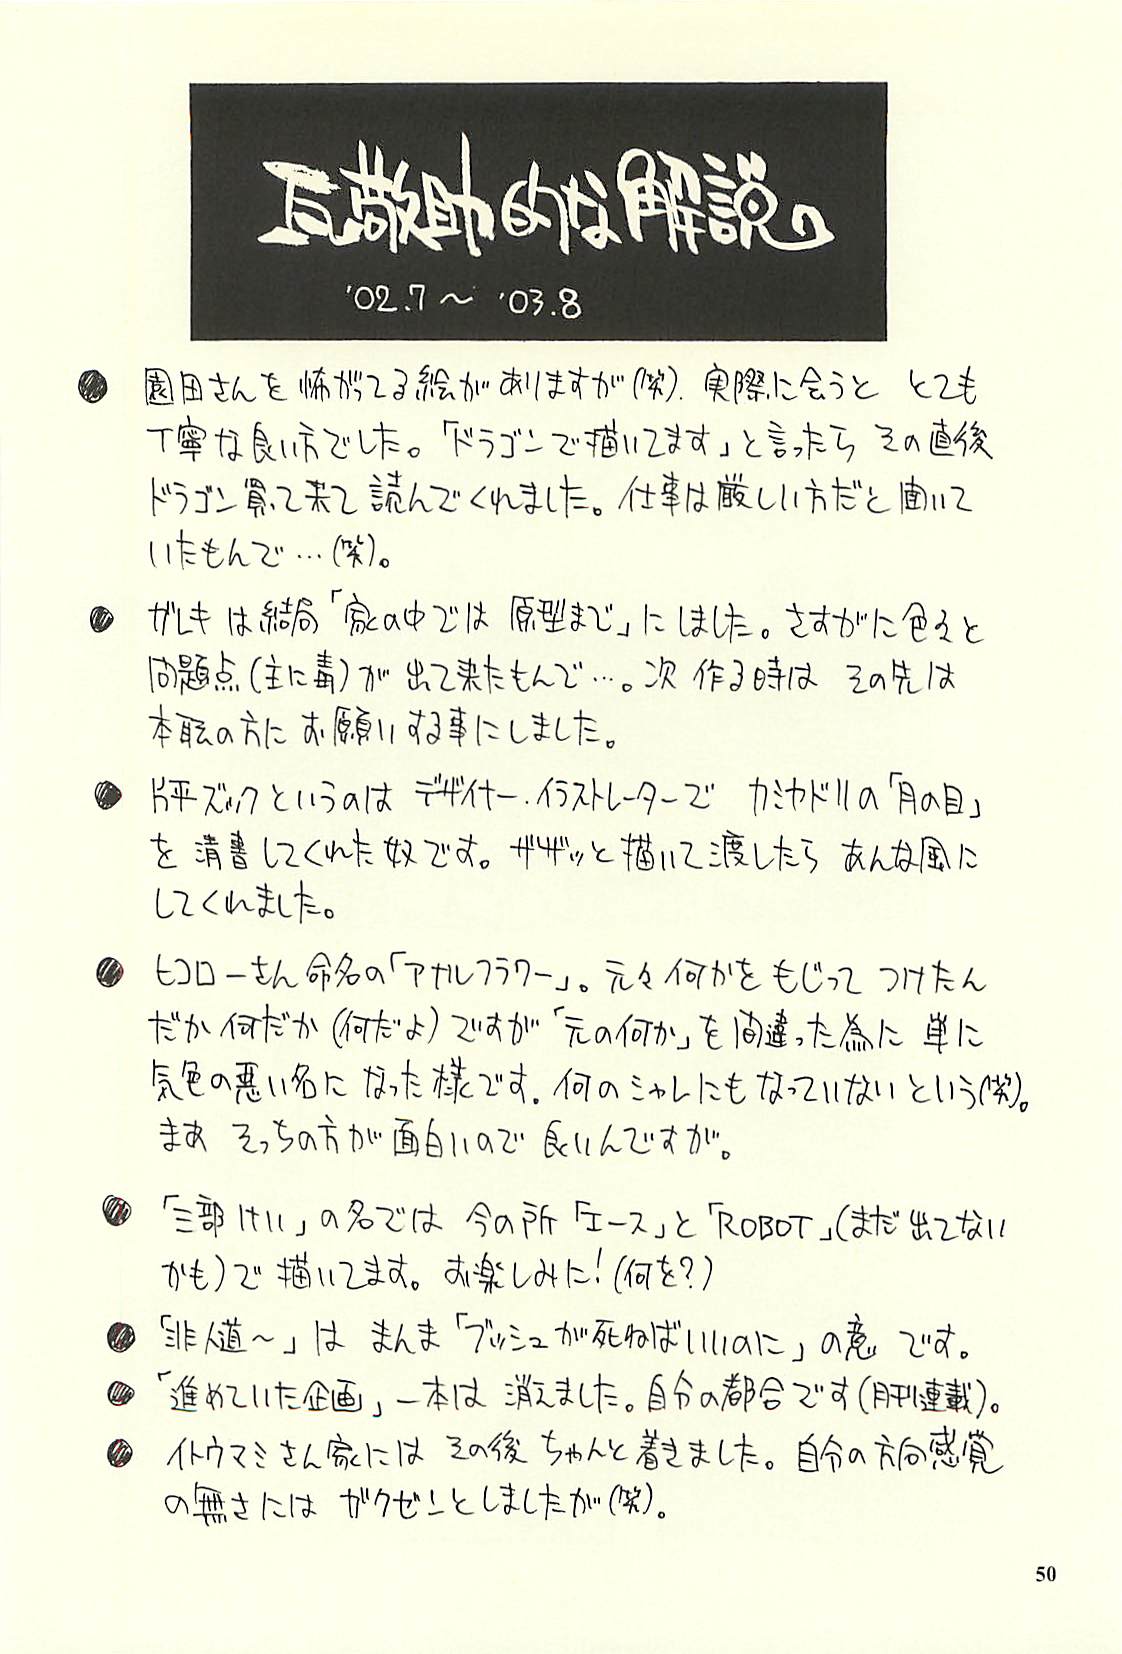 瓦敬助的な解説。
'02.7～'03.8
● 園田さんを怖がってる絵がありますが(笑). 実際に会うと とても
丁寧な良い方でした。「ドラゴンで描いてます」と言ったら その直後
ドラゴン買って来て 読んでくれました。仕事は厳しい方だと聞いて
いたもんで…(笑)。
● ガレキは結局「家の中では 原型まで」にしました。さすがに色々と
問題点(主に毒)が 出て来たもんで…。次 作る時は その先は
本職の方に お願いする事にしました。
● 片平ズックというのは デザイナー.イラストレーターで カミヤドリの「月の目」
を 清書してくれた奴です。ザザッと描いて渡したら あんな風に
してくれました。
● ヒコローさん命名の「アガルフラワー」。元々何かを もじって つけたん
だか何だか(何だよ)ですが「元の何か」を間違った為に 単に
気色の悪い名に なった様です. 何のシャレにもなっていないという(笑)。
まあ そっちの方が面白いので 良いんですが。
● 「三部けい」の名では 今の所「エース」と「ROBOT」(まだ出てない
かも)で 描いてます。お楽しみに!(何を?)
● 「非人道～」は まんま「ブッシュが死ねばいいのに」の意 です。
● 「進めていた企画」一本は 消えました。自分の都合です(月刊連載)。
● イトウマミさん家には その後 ちゃんと着きました。自分の方向感覚
の無さには ガクゼンとしましたが(笑)。
50